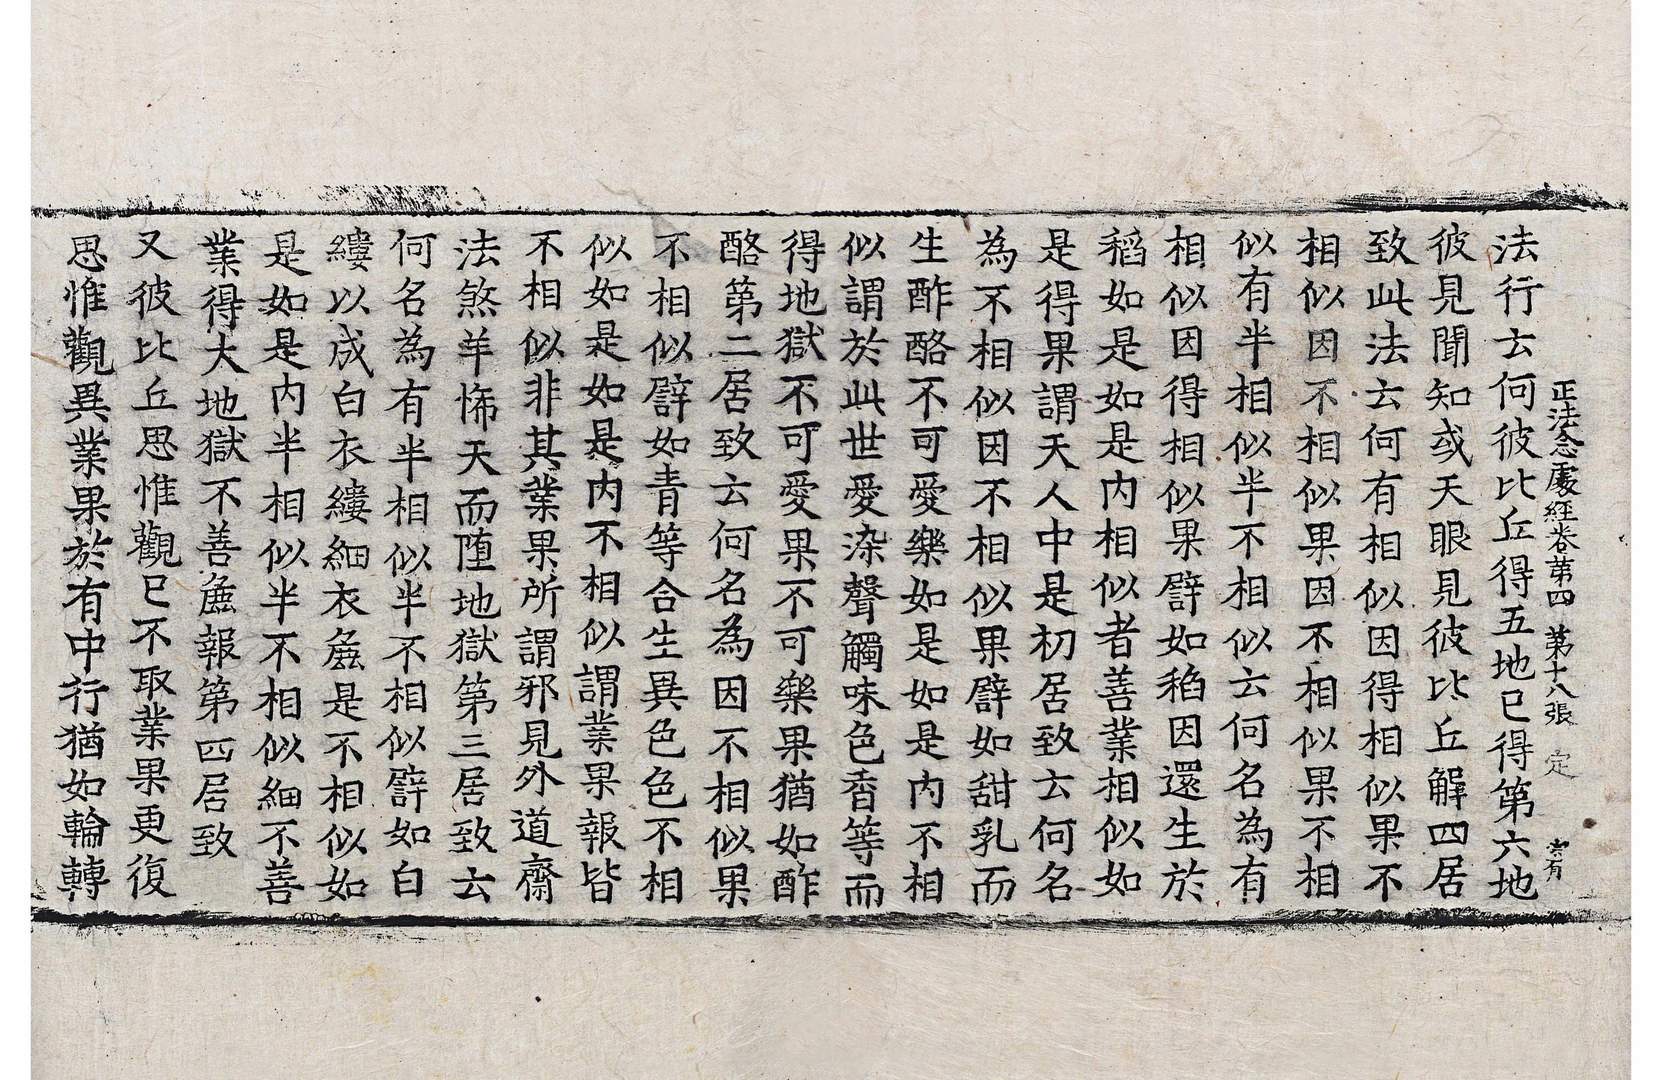 正法念處經卷第四 第十八張 定
法行云何彼比丘得五地已得第六地
彼見聞知或天眼見彼比丘解四居
致此法云何有相似因得相似果不
相似因不相似果因不相似果不相
似有半相似半不相似云何名為有
相似因得相似果譬如稻因還生於
稻如是如是內相似者善業相似如
是得果謂天人中是初居致云何名
為不相似因不相似果譬如甜乳而
生酢酪不可愛樂如是如是內不相
似謂於此世愛愛染聲觸味色香等而
得地獄不可愛果不可樂果猶如酢
酪第二居致云何名為因不相似果
不相似譬如青等合生異色色不相
似如是如是內不相似謂業果報皆
不相似非其業果所謂邪見外道齋
法煞羊悕天而墮地獄第三居致云
何名為有半相似半不相似譬如白
縷以成白衣縷細衣麁是不相似如
是如是內半相似半不相似細不善
業得大地獄不善麁報第四居致
又彼比丘思惟觀已不取業果更復
思惟觀異業果於有中行猶如輪轉